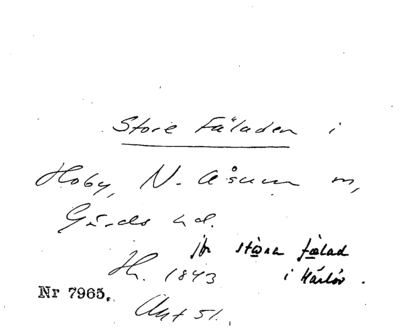 Store Fäladen i
Hoby, N. Åsum m,
Gärds hd.
jfr störa fälad
Hk. 1843 i Härlöv.
Nr 7965.
Akt 51.